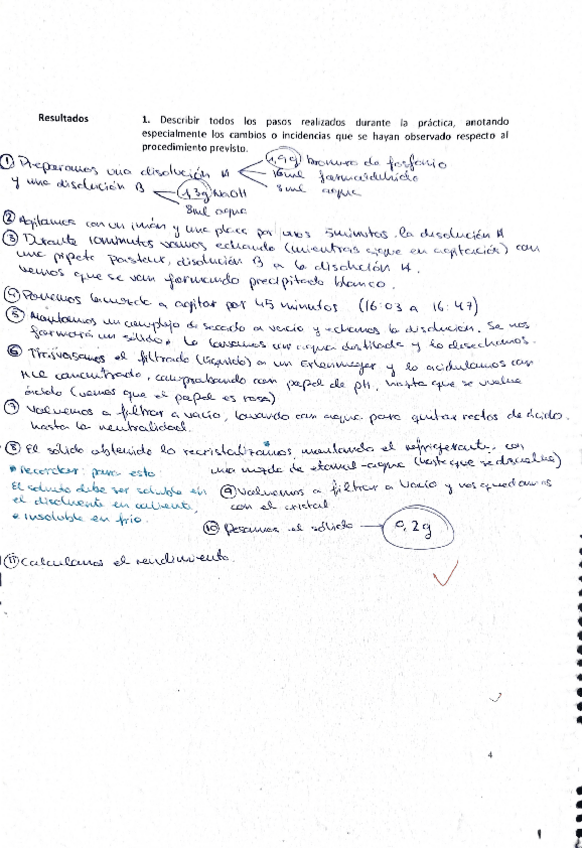 Resultados
1. Describir todos los pasos realizados durante la práctica, anotando
especialmente los cambios o incidencias que se hayan observado respecto al
procedimiento previsto.
① Preparamos una disolución A 1,9g bromuro de fosfonio
16ml formaldehido
8ml agua
y una disolución B 1,3g NaOH
8ml agua
② Agitamos con un imán y una placa por unos 5 minutos la disolución A
③ Durante 10 minutos vamos echando (mientras sigue en agitación) con
una pipeta Pasteur, disolución B a la disolución A.
vemos que se van formando precipitado blanco.
④ Ponemos la mezcla a agitar por 45 minutos (16:03 a 16:47)
⑤ Montamos un complejo de secado a vacio y echamos la disolución. Se nos
formará un sólido, lo lavamos con agua destilada y lo desechamos.
⑥ Trasvasamos el filtrado (líquido) a un Erlenmeyer y lo acidulamos con
HCl concentrado, comprobando con papel de pH, hasta que se vuelva
ácido (vemos que el papel es rosa)
⑦ Volvemos a filtrar a vacio, lavando con agua para quitar restos de ácido.
hasta la neutralidad.
⑧ El sólido obtenido lo recristalizamos, montando el refrigerante, con
una mezcla de etanol-agua (hasta que se disuelva)
* Recordar: para esto
El soluto debe ser soluble en
el disolvente en caliente,
e insoluble en frío.
⑨ Volvemos a filtrar a vacio y nos quedamos
con el cristal
⑩ Pesamos el sólido → 0,2g
⑪ Calculamos el rendimiento.
4